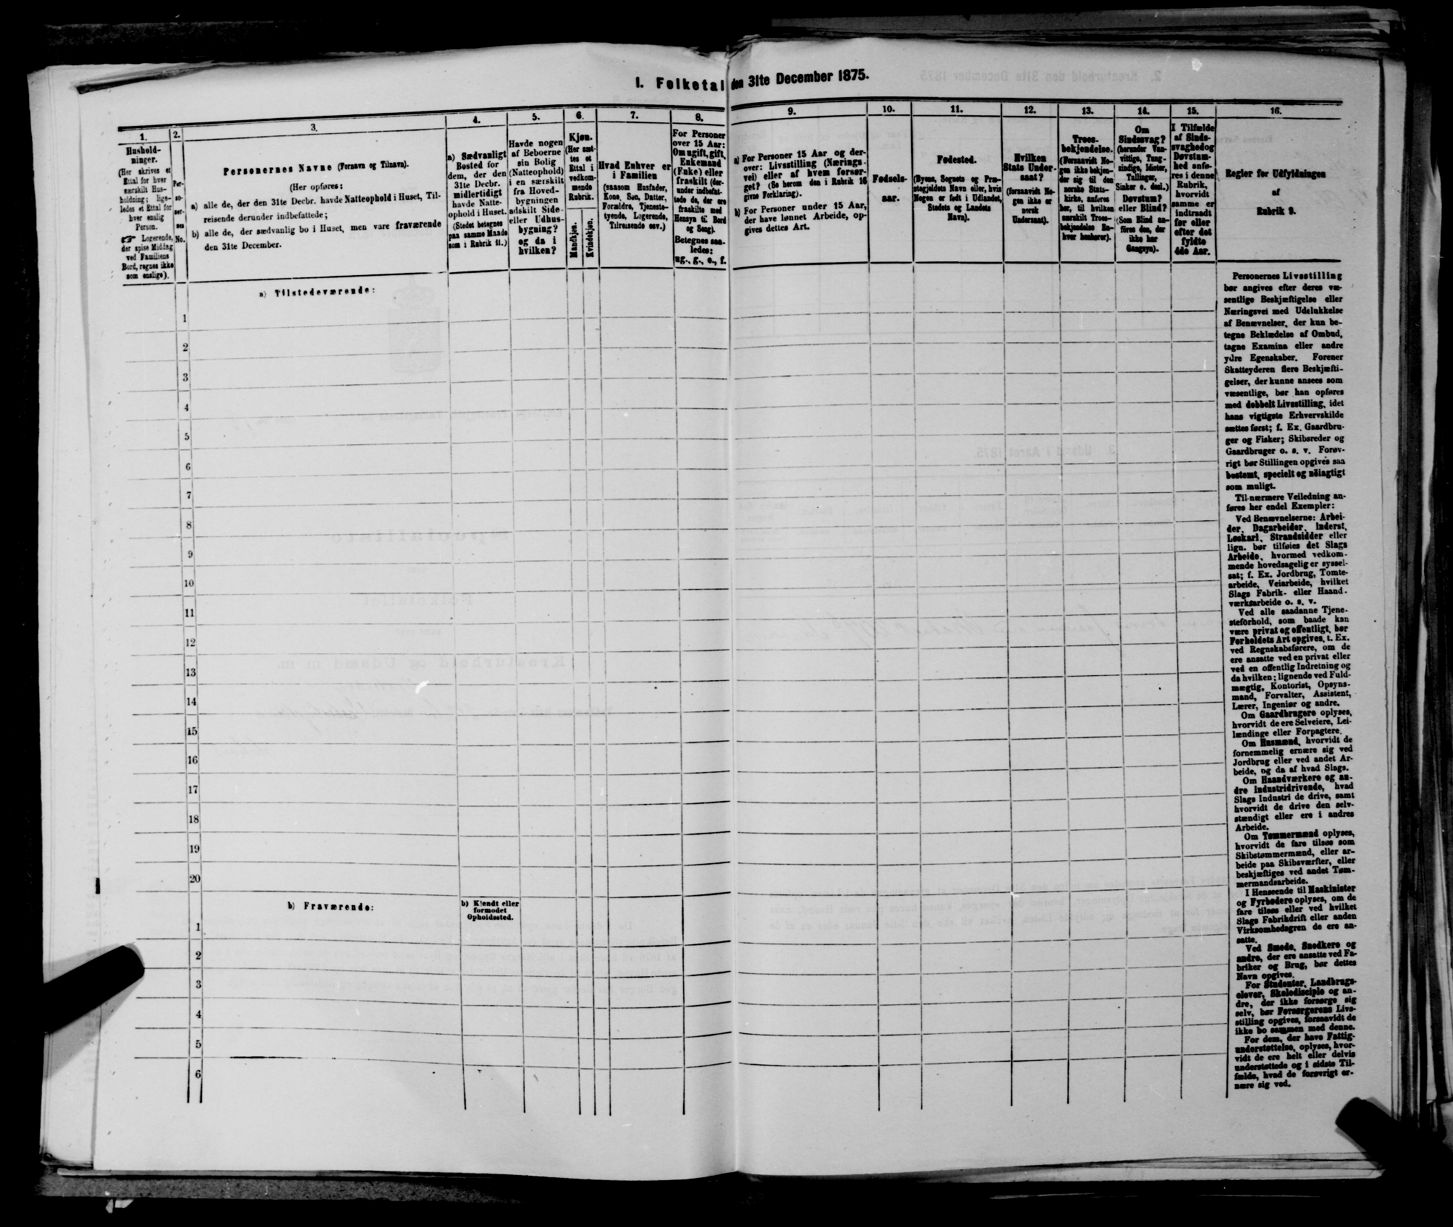 I. Folketal den 31te December 1875.
1.
Hushold-
ninger.
(Her skrives et
Ettal for hver
særskilt Hus-
holdning; lige-
ledes et Ettal for
hver enslig
Person.
☞ Logerende,
der spise Middag
ved Familiens
Bord, regnes ikke
som enslige).
2.
Per-
so-
ner-
nes
No.
3.
Personernes Navne (Fornavn og Tilnavn).
(Her opføres:
a) alle de, der den 31te Decbr. havde Natteophold i Huset, Til-
reisende derunder indbefattede;
b) alle de, der sædvanlig bo i Huset, men vare fraværende
den 31te December.
4.
a) Sædvanligt
Bosted for
dem, der den
31te Decbr.
midlertidigt
havde Natte-
ophold i Huset.
(Stedet betegnes
paa samme Maade
som i Rubrik 11.)
5.
Havde nogen
af Beboerne
sin Bolig
(Natteophold)
i en særskilt
fra Hoved-
bygningen
adskilt Side-
eller Udhus-
bygning?
og da i
hvilken?
6.
Kjøn.
(Her sæt-
tes et
Ettal i
vedkom-
mende
Rubrik.
Mandkjøn.
Kvindekjøn.
7.
Hvad Enhver er
i Familien
(saasom Husfader,
Kone, Søn, Datter,
Forældre, Tjeneste-
tyende, Logerende,
Tilreisende osv.)
8.
For Personer
over 15 Aar:
Om ugift, gift,
Enkemand
(Enke) eller
fraskilt (der-
under indbefat-
tede de, der ere
fraskilte med
Hensyn til Bord
og Seng).
Betegnes saa-
ledes:
ug., g., e., f.
9.
a) For Personer 15 Aar og der-
over: Livsstilling (Nærings-
vei) eller af hvem forsør-
get? (Se herom den i Rubrik 16
givne Forklaring).
b) For Personer under 15 Aar,
der have lønnet Arbeide, op-
gives dettes Art.
10.
Fødsels-
aar.
11.
Fødested.
(Byens, Sognets og Præ-
stegjeldets Navn eller, hvis
Nogen er født i Udlandet,
Stedets og Landets
Navn).
12.
Hvilken
Stats Under-
saat?
(forsaavidt No-
gen ikke er
norsk
Undersaat).
13.
Troes-
bekjendelse.
(Forsaavidt No-
gen ikke bekjen-
der sig til den
norske Stats-
kirke, anføres
her, til hvilken
særskilt Troes-
bekjendelse En-
hver henhører).
14.
Om
Sindssvag?
(herunder Van-
vittige, Tung-
sindige, Idioter,
Tullinger,
Sinker o. desl.)
Døvstum?
eller Blind?
(Som Blind an-
føres den, der
ikke har
Gangsyn).
15.
I Tilfælde
af Sinds-
svaghed og
Døvstum-
hed anfø-
res i denne
Rubrik,
hvorvidt
samme er
indtraadt
før eller
efter det
fyldte
4de Aar.
16.
Regler for Udfyldningen
af
Rubrik 9.
a) Tilstedeværende:
1
2
3
4
5
6
7
8
9
10
11
12
13
14
15
16
17
18
19
20
b) Fraværende:
b) Kjendt eller
formodet
Opholdssted.
1
2
3
4
5
6
Personernes Livsstilling
bør angives efter deres væ-
sentlige Beskjæftigelse eller
Næringsvei med Udelukkelse
af Benævnelser, der kun be-
tegne Beklædelse af Ombud,
tagne Examina eller andre
ydre Egenskaber. Forener
Skatteyderen flere Beskjæfti-
gelser, der kunne ansees som
væsentlige, bør han opføres
med dobbelt Livsstilling, idet
hans vigtigste Erhvervskilde
sættes først; f. Ex. Gaardbru-
ger og Fisker; Skibsreder og
Gaardbruger o. s. v. Forøv-
rigt bør Stillingen opgives saa
bestemt, specielt og nøiagtigt
som muligt.
Til nærmere Veiledning an-
føres her endel Exempler:
Ved Benævnelserne: Arbei-
der, Dagarbeider, Inderst,
Løskarl, Strandsidder eller
lign. bør tilføies det Slags
Arbeide, hvormed vedkom-
mende hovedsagelig er syssel-
sat; f. Ex. Jordbrug, Tomte-
arbeide, Veiarbeide, hvilket
Slags Fabrik- eller Haand-
værksarbeide o. s. v.
Ved alle saadanne Tjene-
steforhold, som baade kan
være privat og offentligt, bør
Forholdets Art opgives, f. Ex.
ved Regnskabsførere, om de
ere ansatte ved en privat eller
ved en offentlig Indretning og
da hvilken; lignende ved Fuld-
mægtig, Kontorist, Opsyns-
mand, Forvalter, Assistent,
Lærer, Ingeniør og andre.
Om Gaardbrugere oplyses,
hvorvidt de ere Selveiere, Lei-
lændinge eller Forpagtere.
Om Husmænd, hvorvidt de
fornemmelig ernære sig ved
Jordbrug eller ved andet Ar-
beide, og da af hvad Slags.
Om Haandværkere og an-
dre Industridrivende, hvad
Slags Industri de drive, samt
hvorvidt de drive den selv-
stændigt eller ere i andres
Arbeide.
Om Tømmermænd oplyses,
hvorvidt de fare tilsøs som
Skibstømmermænd, eller ar-
beide paa Skibsværfter, eller
beskjæftiges ved andet Tøm-
mermandsarbeide.
I Henseende til Maskinister
og Fyrbødere oplyses, om de
fare tilsøs eller ved hvilket
Slags Fabrikdrift eller anden
Virksomhedsgren de ere an-
satte.
Ved Smede, Snedkere og
andre, der ere ansatte ved Fa-
briker og Brug, bør dettes
Navn opgives.
For Studenter, Landbrugs-
elever, Skoledisciple og an-
dre, der ikke forsørge sig
selv, bør Forsørgerens Livs-
stilling opgives, forsaavidt de
ikke bo sammen med denne.
For dem, der have Fattig-
understøttelse, oplyses, hvor-
vidt de ere helt eller delvis
understøttede og i sidste Til-
fælde, hvad de forøvrigt er-
nære sig ved.